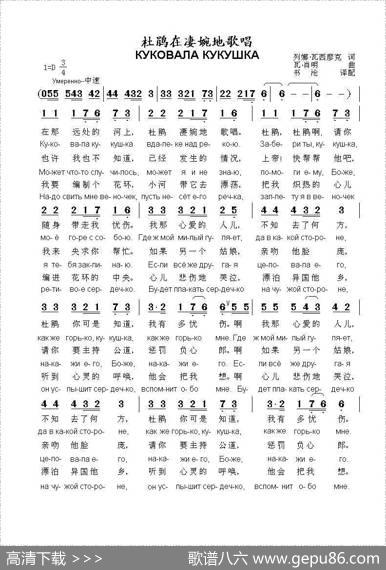 杜鹃在凄婉地歌唱
КУКОВАЛА КУКУШКА
1=D 3/4
列娜·瓦西廖克 词
瓦·肖明 曲
书沦 译配
Умеренно-中速
(055 543 42 | 442 432 3 | 333 321 73 | 22 217 6)
1 1 176 | 1 1 7 | 3 3 321 | 7 7 3 | 2 2 217
在那 远处的 河上, 杜鹃 凄婉地 歌唱。 杜鹃 杜鹃啊, 请你
Куко- вала куку- шка вдале- ке над ре- кою. Забе- ри ты, куку-
也许 我也不 知道, 已经 发生的 情况, 上帝! 快帮帮 他吧,
Может что-то слу- чилось, может я и не зна- ю, помо- ги ему, Боже,
我要 编制个 花环, 小河 带它去 漂荡, 把我 炽热的 心儿
Надо свить мне ве- ночек, пусть не- сёт его ре- чка, запле- ту я в вено- чек
随身 带走我 忧伤。 我那 心爱的 人儿, 不知 去了何 方,
мо- ё горе с собо- ю. Где ж мой милый гуля- ет, да в какой сторо- не,
我来 央求你 帮忙。 如果 另一个 姑娘, 亲吻 他脸 庞,
я те- бя закли- на- ю. Если всё же дру- гая целo- вала е- го,
编进 花环的 中央。 心儿 悲伤地 哭泣, 漂泊 异国他 乡,
рети- вое сер- дечко. Будет плакать сер- дечко на чужой сто- роне,
杜鹃 你可是 知道, 我有 多忧 伤。啊 我那 心爱的 人儿,
как же горько ку- кушка, как же горько мне. Где ж мой милый гуля- ет,
请你 要主持 公道, 惩罚 负心 郎。啊 如果 另一个 姑娘,
нака- жи е- го, Боже, нака- жи е- го. Если всё же дру- гая
听到 心灵的 呼唤, 他会 把我 想。啊 心儿 悲伤地 哭泣,
он ус- лышит сер- дечко, вспомнит о- бо мне. Будет плакать сер- дечко
不知 去了何 方, 杜鹃 你可是 知道, 我有 多忧 伤。
да в какой сторо- не, как же горько, ку- кушка, как же горько мне.
亲吻 他脸 庞, 请你 要主持 公道, 惩罚 负心 郎。
цело- вала е- го, нака- жи е- го, Боже, нака- жи е- го.
漂泊 异国他 乡, 听到 心灵的 呼唤, 他会 把我 想。
на чужой сто- роне, он ус- лышит сер- дечко, вспомнит о- бо мне.
高清下载 >>>
歌谱八六 www.gepu86.com